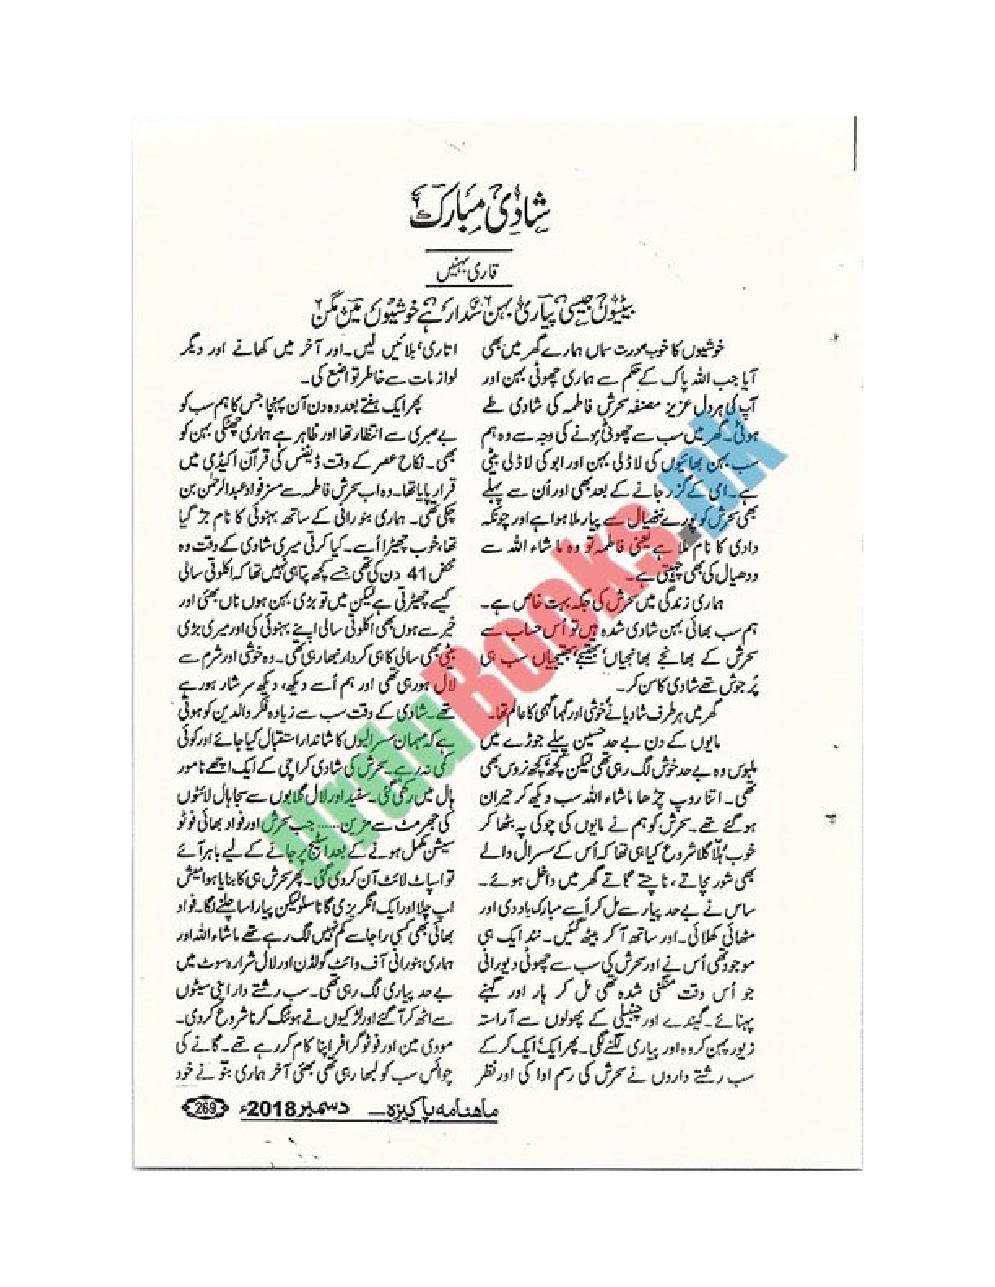 شادی مبارک
قاری بہنیں
بیٹیوں جیسی پیاری بہن سدا رہے خوشیوں میں مگن
خوشیوں کا خوب صورت سماں ہمارے گھر میں بھی
آیا جب اللہ پاک کے حکم سے ہماری چھوٹی بہن اور
آپ کی ہر دل عزیز مصنفہ سحرش فاطمہ کی شادی طے
ہوئی۔ گھر میں سب سے چھوٹی ہونے کی وجہ سے وہ ہم
سب بہن بھائیوں کی لاڈلی بہن اور ابو کی لاڈلی بیٹی
ہے۔ امی کے گزر جانے کے بعد بھی اور اُن سے پہلے
بھی سحرش کو پورے ننھیال سے پیار ملا ہوا ہے اور چونکہ
دادی کا نام ملا ہے یعنی فاطمہ تو وہ ما شاء اللہ سے
ددھیال کی بھی چہیتی ہے۔
ہماری زندگی میں سحرش کی جگہ بہت خاص ہے۔
ہم سب بھائی بہن شادی شدہ ہیں تو اُس حساب سے
سحرش کے بھانجے بھانجیاں، بھتیجے، بھتیجیاں سب ہی
پُر جوش تھے شادی کا سن کر۔
گھر میں ہر طرف شادیانے خوشی اور گہما گہمی کا عالم تھا۔
مایوں کے دن بے حد حسین پیلے جوڑے میں
ملبوس وہ بے حد خوش لگ رہی تھی لیکن کچھ کچھ نروس بھی
تھی۔ اتنا روپ چڑھا ماشاء اللہ سب دیکھ کر حیران
ہو گئے تھے۔ سحرش کو ہم نے مایوں کی چوکی پہ بٹھا کر
خوب ہلّا گلا شروع کیا ہی تھا کہ اُس کے سسرال والے
بھی شور مچاتے، ناچتے گاتے گھر میں داخل ہوئے۔
ساس نے بے حد پیار سے مل کر اُسے مبارک باد دی اور
مٹھائی کھلائی۔ اور ساتھ آ کر بیٹھ گئیں۔ نند ایک ہی
موجود تھی اُس نے اور سحرش کی سب سے چھوٹی دیورانی
جو اُس وقت منگنی شدہ تھی مل کر ہار اور گہنے
پہنائے۔ گیندے اور چنبیلی کے پھولوں سے آراستہ
زیور پہن کر وہ اور پیاری لگنے لگی۔ پھر ایک ایک کر کے
سب رشتے داروں نے سحرش کی رسم ادا کی اور نظر
اتاری، بلائیں لیں۔ اور آخر میں کھانے اور دیگر
لوازمات سے خاطر تواضع کی۔
پھر ایک ہفتے بعد وہ دن آن پہنچا جس کا ہم سب کو
بے صبری سے انتظار تھا اور ظاہر ہے ہماری چھٹکی بہن کو
بھی۔ نکاح عصر کے وقت ڈیفنس کی قرآن اکیڈمی میں
قرار پایا تھا۔ وہ اب سحرش فاطمہ سے مسز فواد عبدالرحمٰن بن
چکی تھی۔ ہماری بنو رانی کے ساتھ بہنوئی کا نام جڑ گیا
تھا، خوب چھیڑا اُسے۔ کیا کرتی میری شادی کے وقت وہ
محض 41 دن کی تھی جسے کچھ پتا ہی نہیں تھا کہ اکلوتی سالی
کیسے چھیڑتی ہے لیکن میں تو بڑی بہن ہوں ناں بھئی اور
خیر سے ہوں بھی اکلوتی سالی اپنے بہنوئی کی اور میری بڑی
بیٹی بھی سالی کا ہی کردار نبھا رہی تھی۔ وہ خوشی اور شرم سے
لال ہو رہی تھی اور ہم اُسے دیکھ، دیکھ سرشار ہو رہے
تھے۔ شادی کے وقت سب سے زیادہ فکر والدین کو ہوتی
ہے کہ مہمان سسرالیوں کا شاندار استقبال کیا جائے اور کوئی
کمی نہ رہے۔ سحرش کی شادی کراچی کے ایک اچھے نامور
ہال میں رکھی گئی۔ سفید اور لال گلابوں سے سجا ہال لائٹوں
کی جھرمٹ سے مزین...... جب سحرش اور فواد بھائی فوٹو
سیشن مکمل ہونے کے بعد اسٹیج پر جانے کے لیے باہر آئے
تو اسپاٹ لائٹ آن کر دی گئی۔ پھر سحرش ہی کا بنایا ہوا میش
اپ چلا اور ایک انگریزی گانا سلو لیکن پیارا سا چلنے لگا۔ فواد
بھائی بھی کسی راجا سے کم نہیں لگ رہے تھے ماشاء اللہ اور
ہماری بنو رانی آف وائٹ گولڈن اور لال شرارہ سوٹ میں
بے حد پیاری لگ رہی تھی۔ سب رشتے دار اپنی سیٹوں
سے اٹھ کر آ گئے اور لڑکیوں نے ہوٹنگ کرنا شروع کر دی۔
مووی مین اور فوٹو گرافر اپنا کام کر رہے تھے۔ گانے کی
چوائس سب کو لبھا رہی تھی بھئی آخر ہماری بنّو نے خود
ماہنامہ پاکیزہ — دسمبر 2018ء
269
UrduBooks.pk